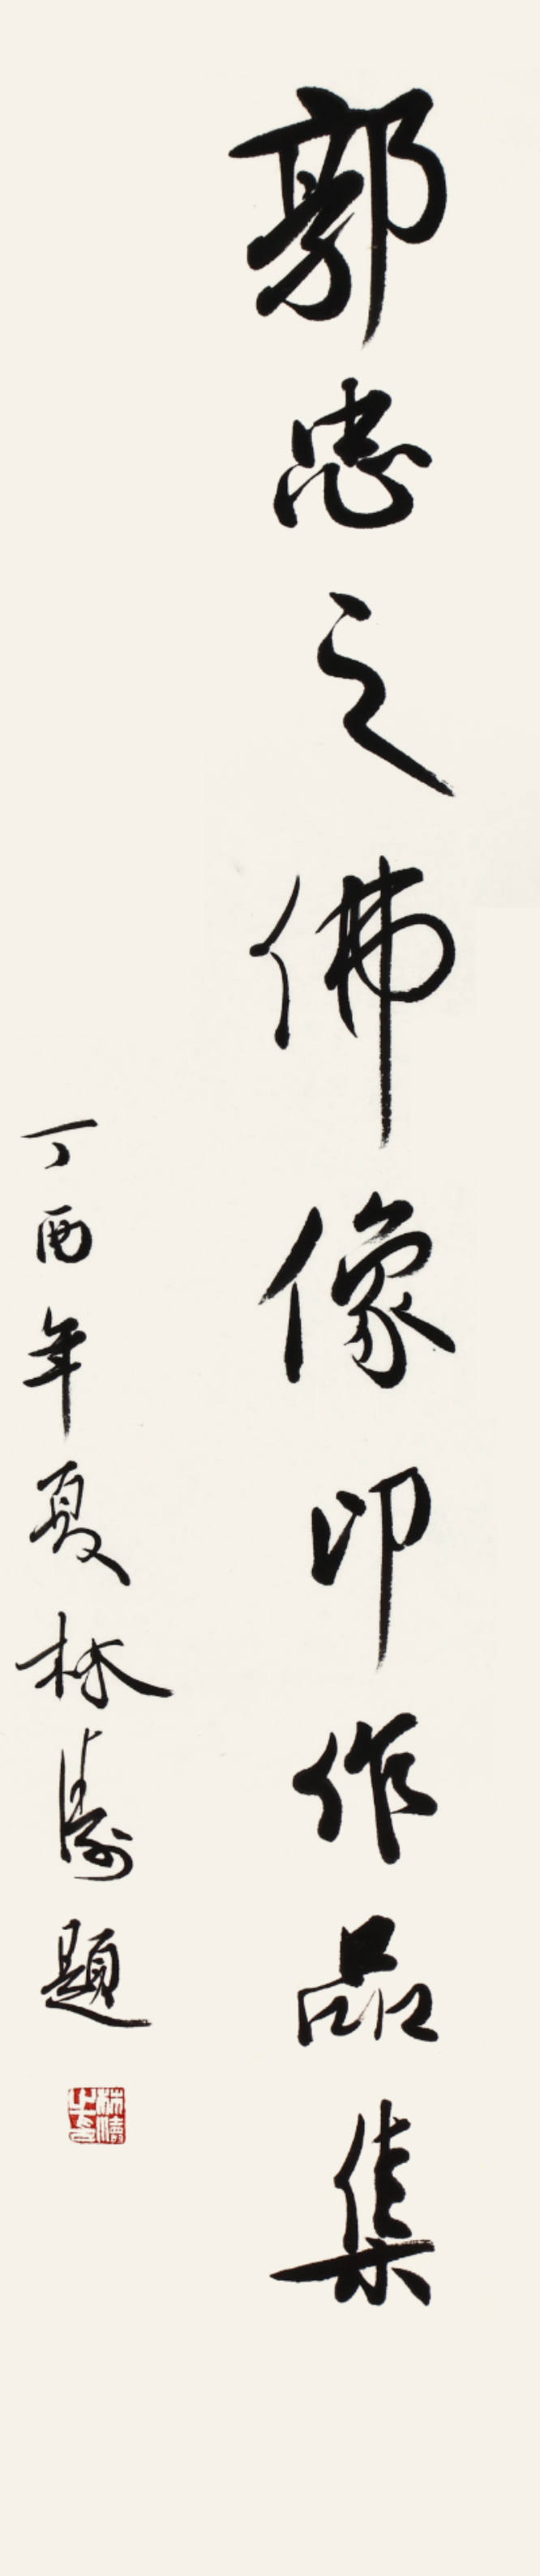 郭忠之佛像印作品集
丁酉年夏林涛題